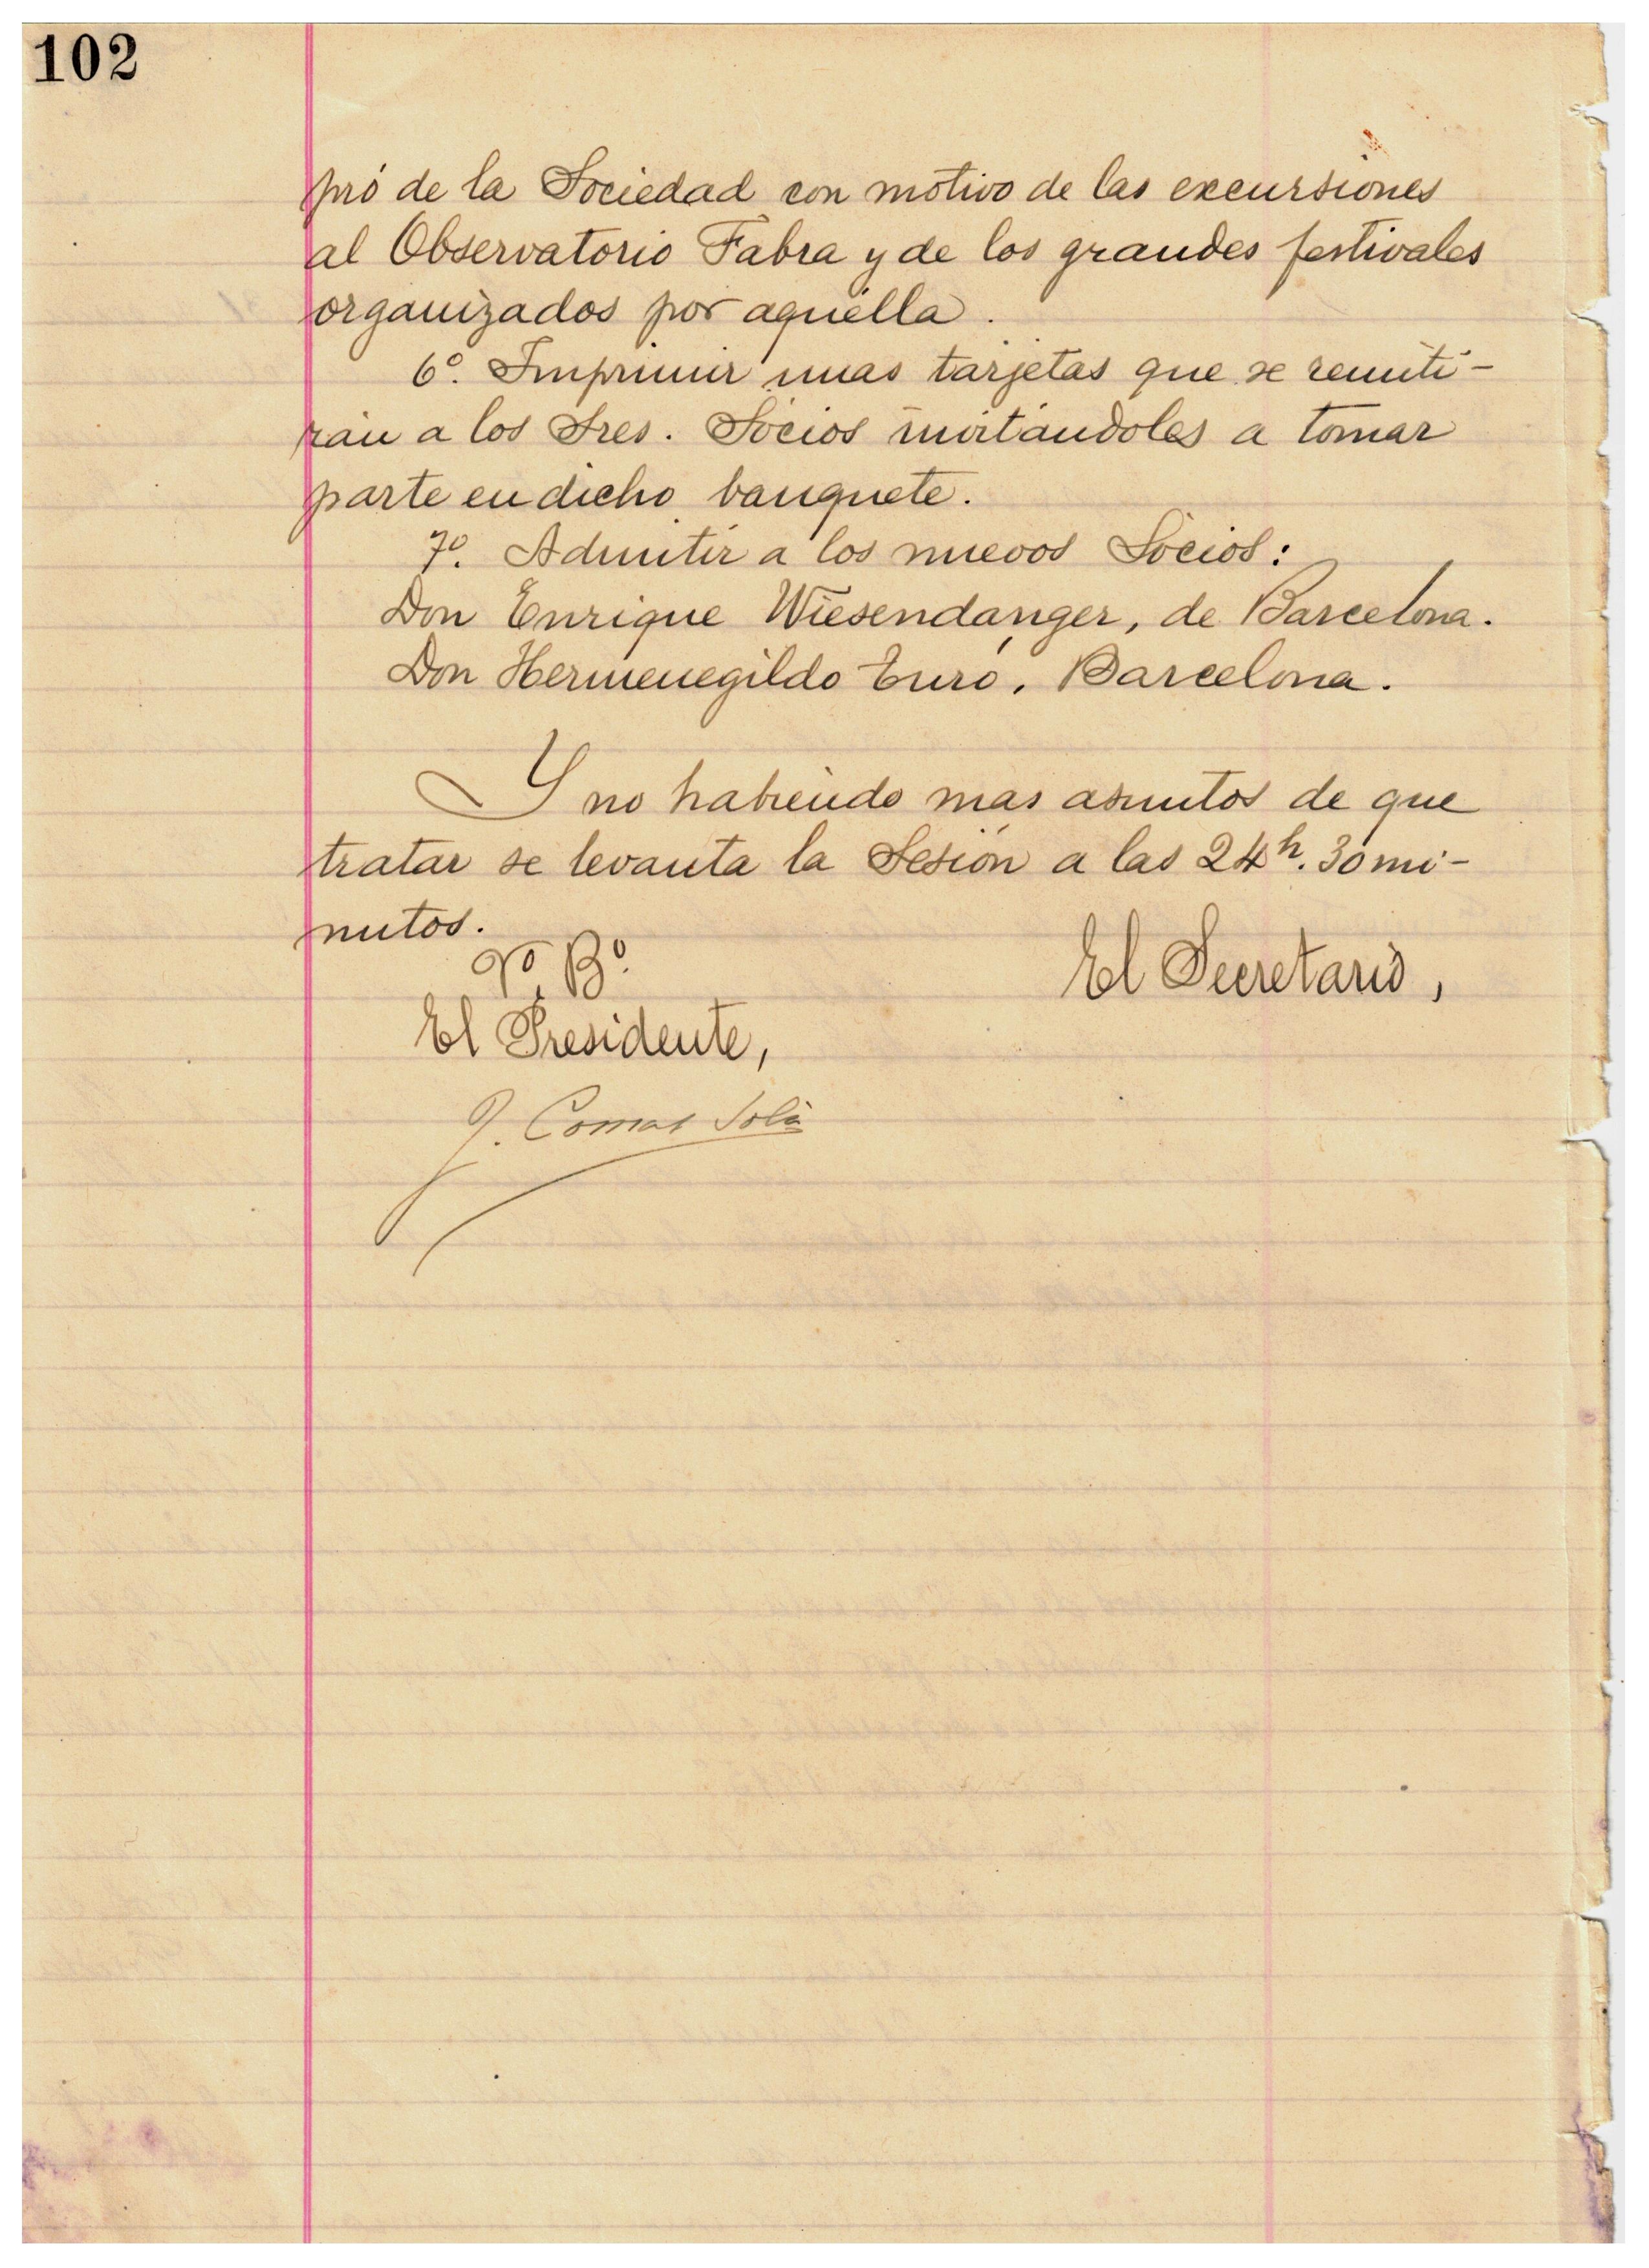 102
pró de la Sociedad con motivo de las excursiones
al Observatorio Fabra y de los grandes festivales
organizados por aquélla.
6º. Imprimir unas tarjetas que se remiti-
rán a los Sres. Socios invitándoles a tomar
parte en dicho banquete.
7º. Admitir a los nuevos Socios:
Don Enrique Wiesendanger, de Barcelona.
Don Hermenegildo Euro, Barcelona.
Y no habiendo mas asuntos de que
tratar se levanta la Sesión a las 24h. 30 mi-
nutos.
Vº Bº
El Secretario,
El Presidente,
J. Comas Solá